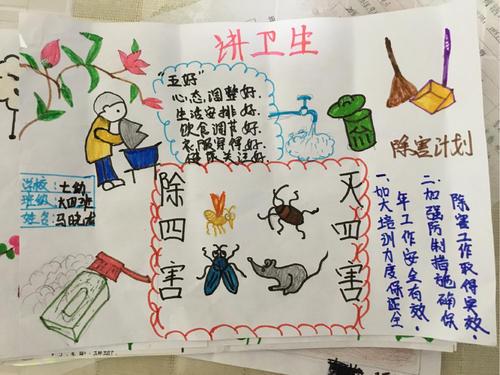 讲卫生
"五好"
心态调整好.
生活安排好.
饮食调节好.
衣服穿得好.
健康关注好.
学校:土幼
班级:大四班
姓名:马晓龙
除四害
灭四害
除害计划
一.加大培训力度保证全
年工作安全有效.
二.加强防制措施确保
除害工作取得实效.